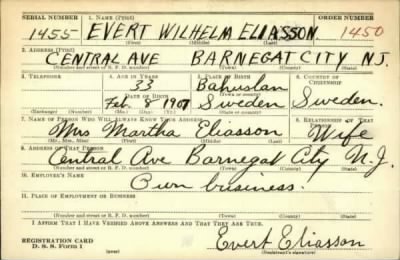 SERIAL NUMBER 1. NAME (Print) ORDER NUMBER
1455 EVERT WILHELM ELIASSON 1450
(First) (Middle) (Last)
2. ADDRESS (Print)
CENTRAL AVE BARNEGAT CITY N.J.
(Number and street or R. F. D. number) (Town) (County) (State)
3. TELEPHONE 4. AGE IN YEARS 5. PLACE OF BIRTH 6. COUNTRY OF CITIZENSHIP
33 Bohuslan
DATE OF BIRTH
Feb. 8 1907 Sweden Sweden.
(Exchange) (Number) (Mo.) (Day) (Yr.) (State or country)
7. NAME OF PERSON WHO WILL ALWAYS KNOW YOUR ADDRESS 8. RELATIONSHIP OF THAT PERSON
Mrs Martha Eliasson Wife
(Mr., Mrs., Miss) (First) (Middle) (Last)
9. ADDRESS OF THAT PERSON
Central Ave Barnegat City N.J.
(Number and street or R. F. D. number) (Town) (County) (State)
10. EMPLOYER'S NAME
Own business.
11. PLACE OF EMPLOYMENT OR BUSINESS
(Number and street or R. F. D. number) (Town) (County) (State)
I AFFIRM THAT I HAVE VERIFIED ABOVE ANSWERS AND THAT THEY ARE TRUE.
REGISTRATION CARD
D. S. S. Form 1
Evert Eliasson
(Registrant's signature)